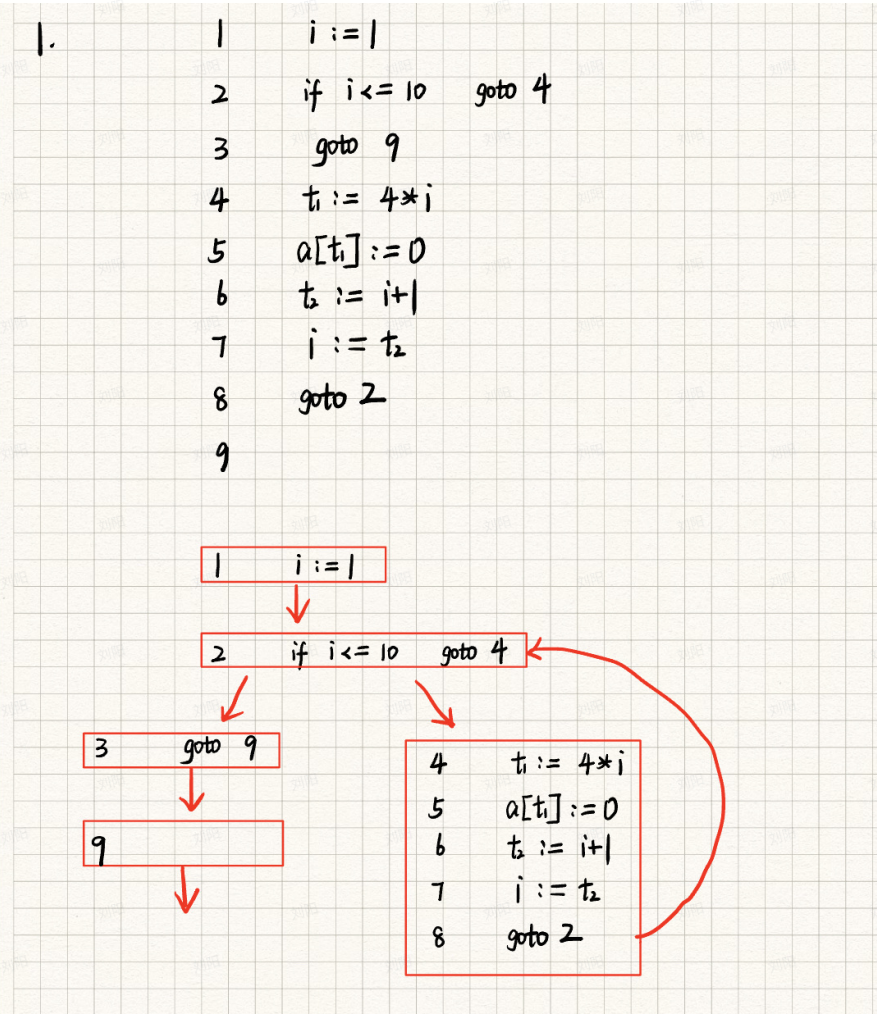 1. 1 i := 1
2 if i <= 10 goto 4
3 goto 9
4 t₁ := 4*i
5 a[t₁] := 0
6 t₂ := i+1
7 i := t₂
8 goto 2
9
1 i := 1
2 if i <= 10 goto 4
3 goto 9
9
4 t₁ := 4*i
5 a[t₁] := 0
6 t₂ := i+1
7 i := t₂
8 goto 2